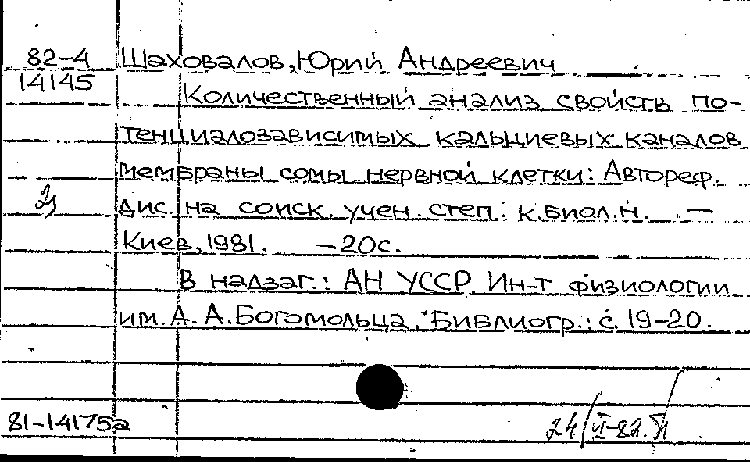 82-4 Шаховалов, Юрий Андреевич
14145
Количественный анализ свойств по-
тенциалозависимых кальциевых каналов
мембраны сомы нервной клетки: Автореф.
дис. на соиск. учен. степ. к.биол.н. —
Киев, 1981. —20с.
В надзаг.: АН УССР Ин-т физиологии
им. А. А. Богомольца. Библиогр.: с. 19-20.
81-14175а
24/VI-82.